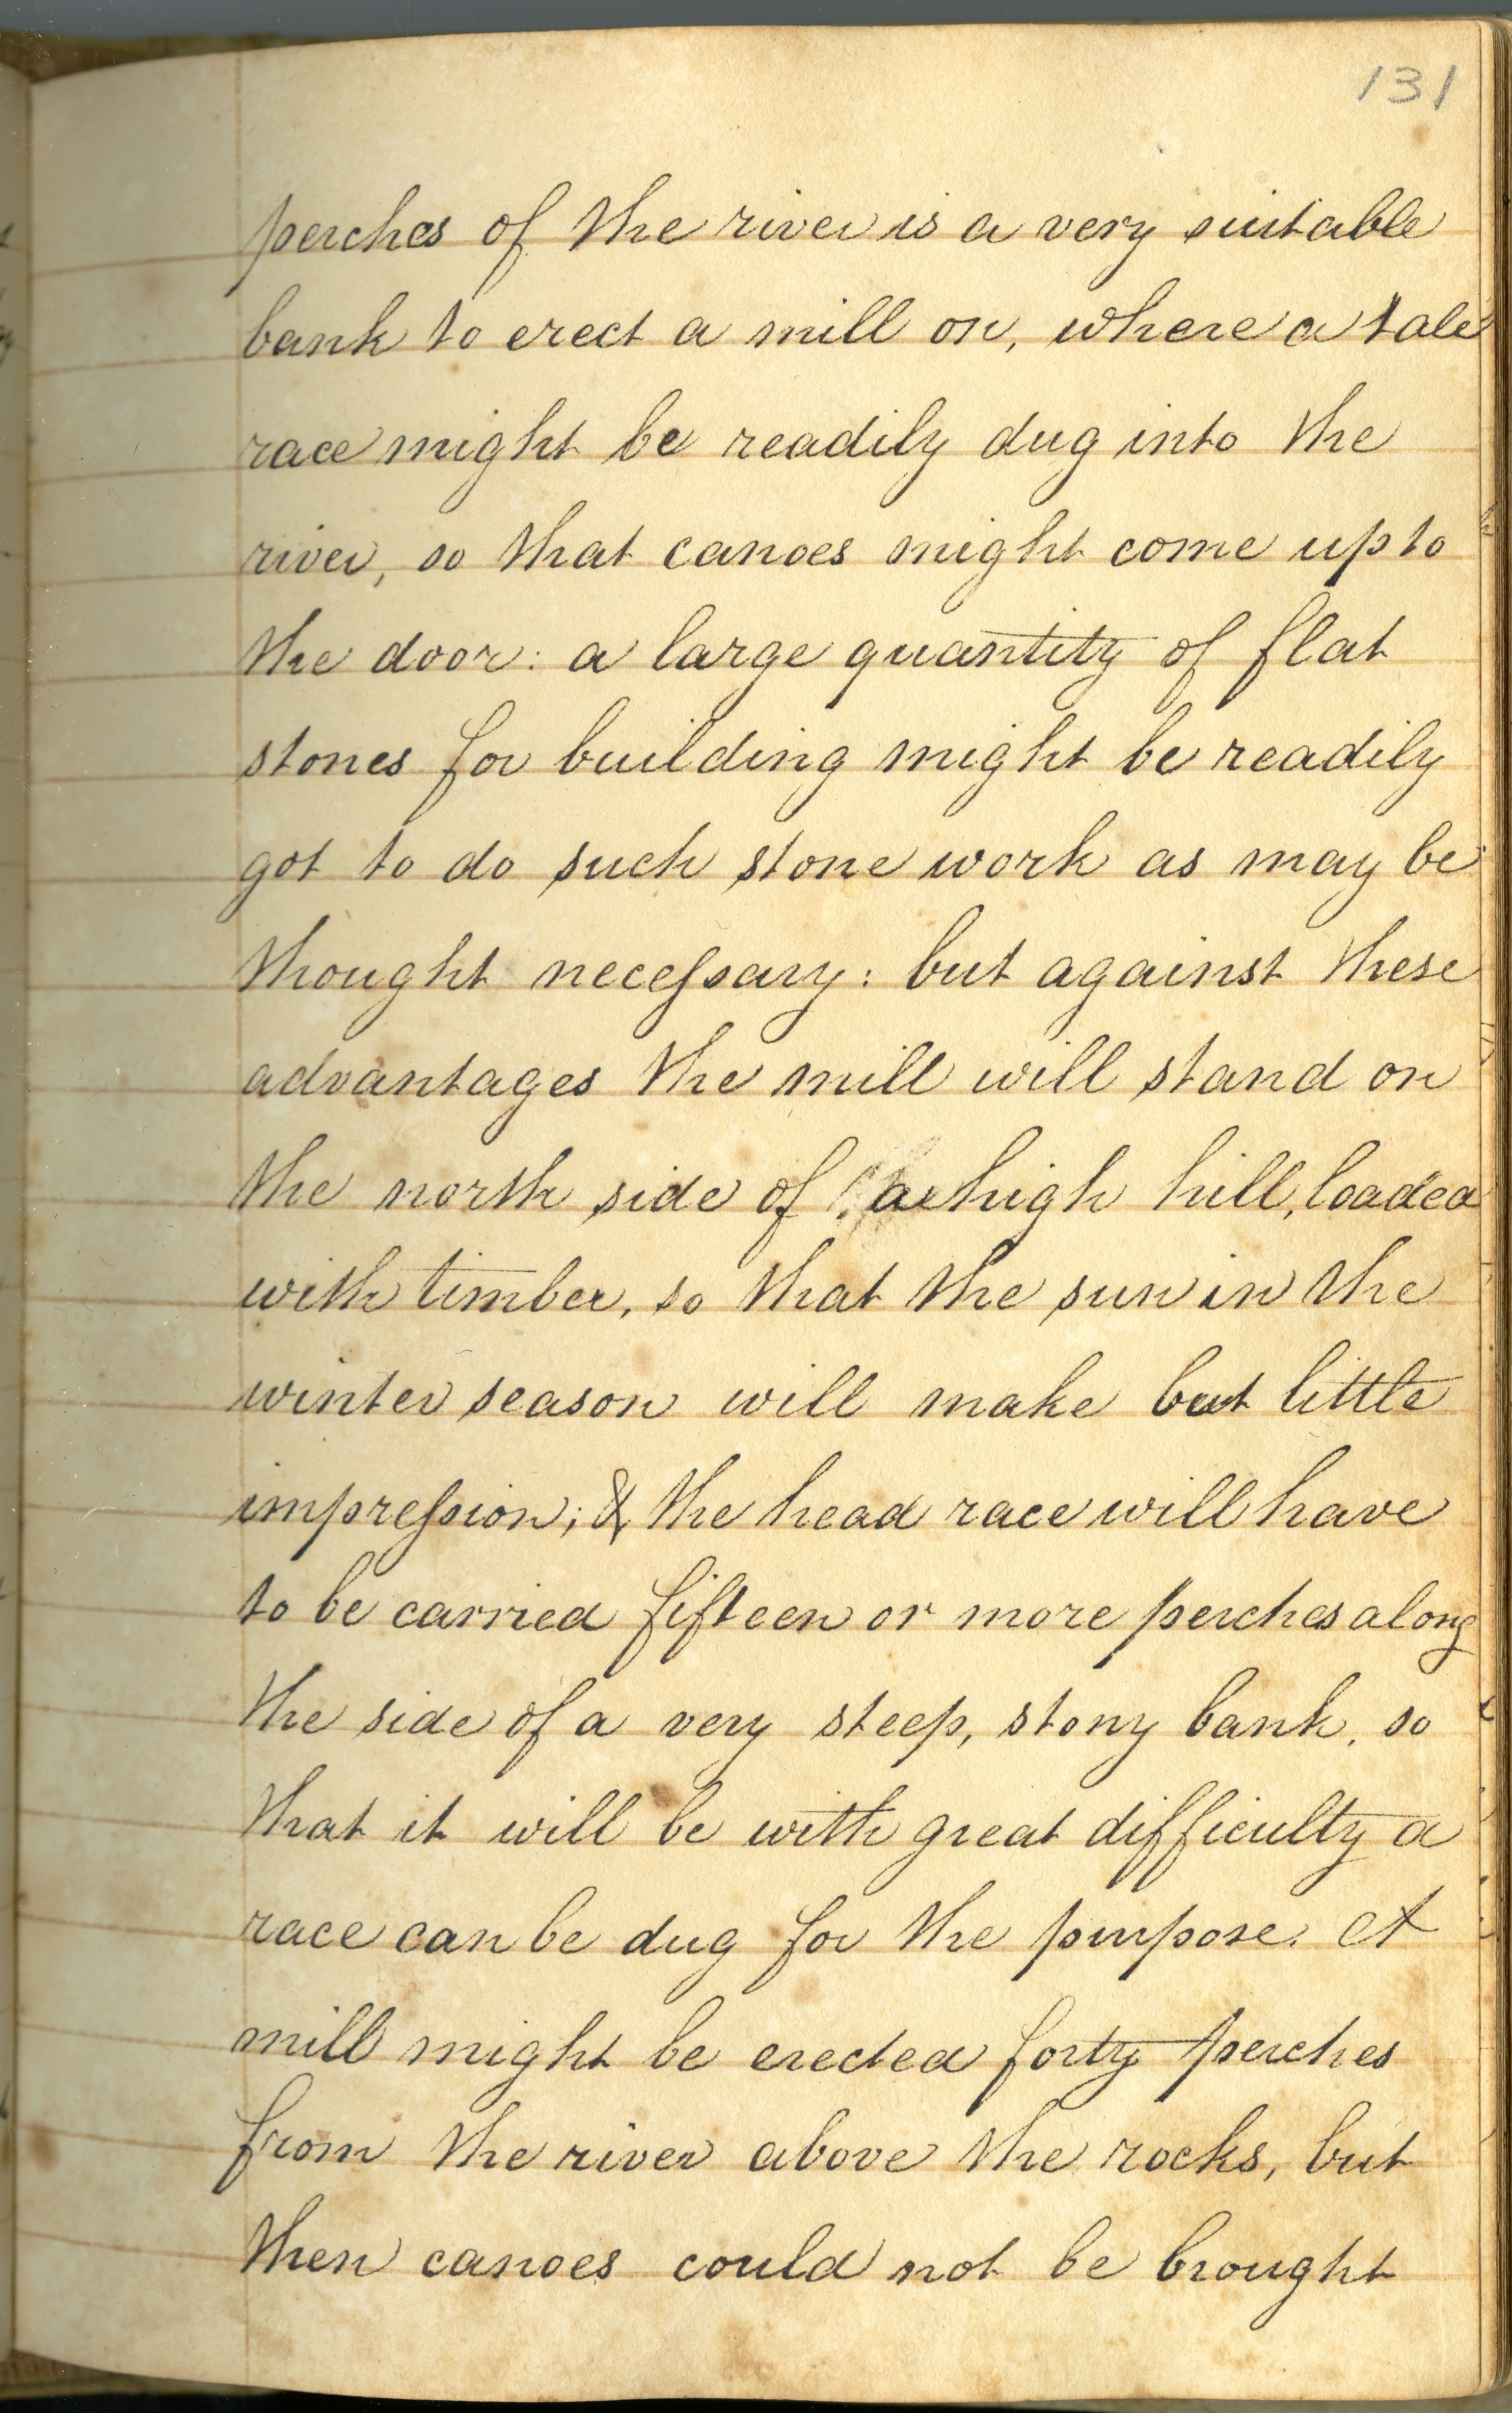 131
perches of the river is a very suitable
bank to erect a mill on, where a tale
race might be readily dug into the
river, so that canoes might come up to
the door: a large quantity of flat
stones for building might be readily
got to do such stone work as may be
thought neceſsary: but against these
advantages the mill will stand on
the north side of a high hill, loaded
with timber, so that the sun in the
winter season will make but little
impreſsion; & the head race will have
to be carried fifteen or more perches along
the side of a very steep, stony bank, so
that it will be with great difficulty a
race can be dug for the purpose. A
mill might be erected forty perches
from the river above the rocks, but
then canoes could not be brought